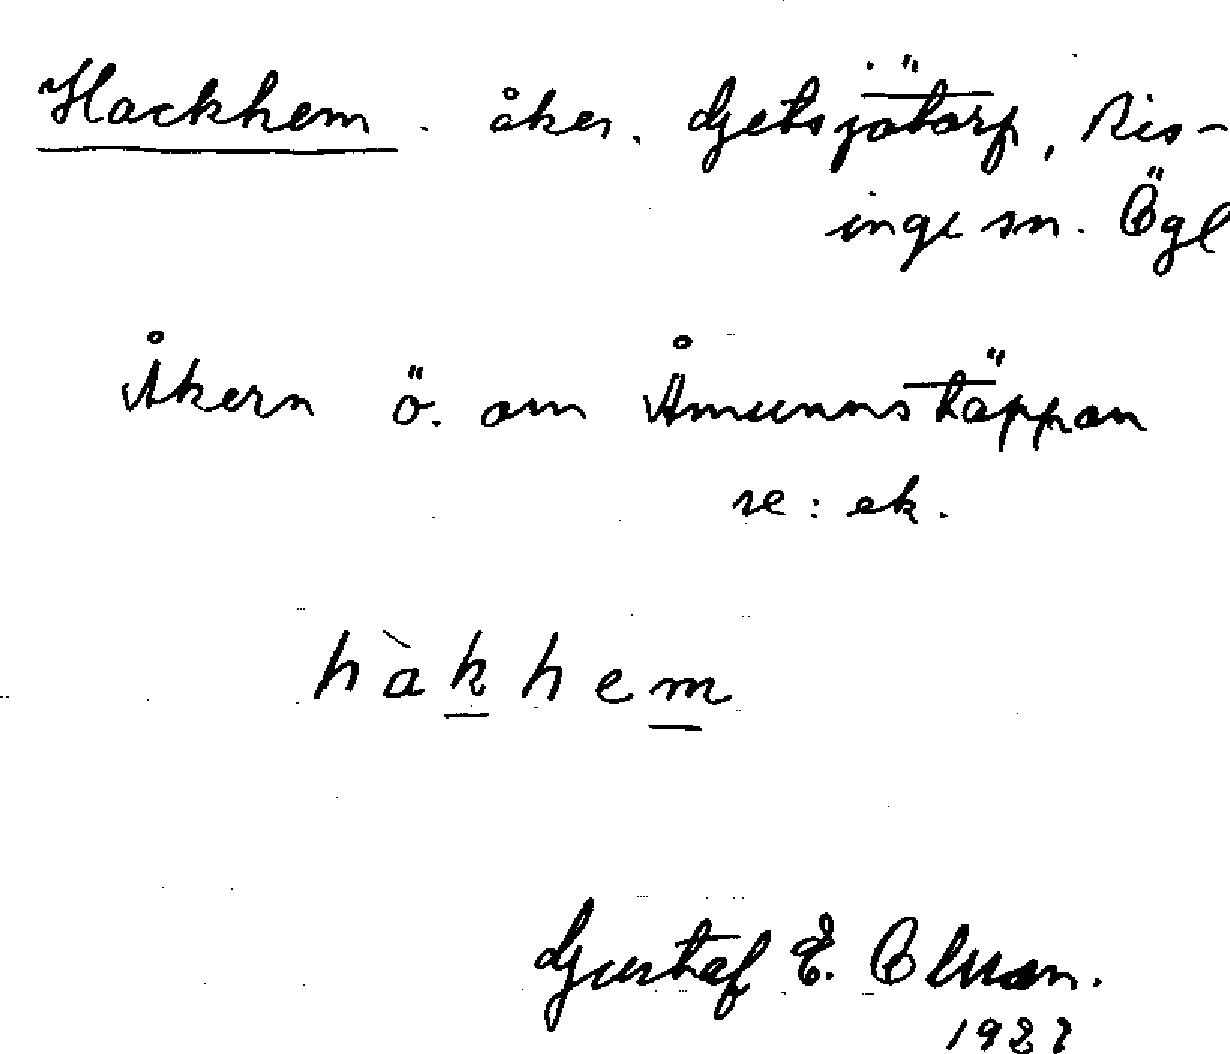 Hackhem. åker. Getsjötorp, Ris-
inge sn. Ögl
Åkern ö. om Åmunnstäppan
se: ek.
hàkhem
Gustaf E. Olsson.